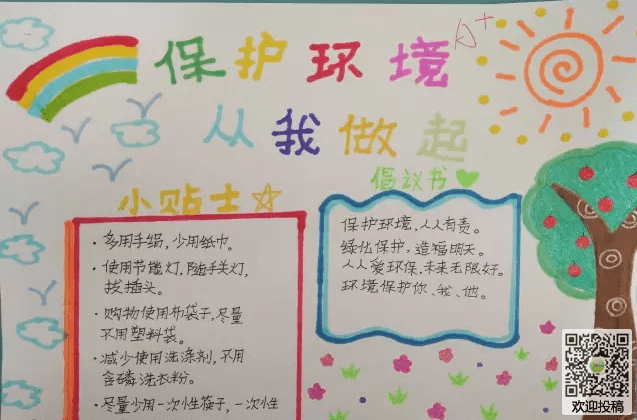 保护环境
A+
从我做起
倡议书
小贴士
保护环境,人人有责。
绿化保护,造福明天。
人人爱环保,未来无限好。
环境保护你、我、他。
·多用手绢,少用纸巾。
·使用节能灯,随手关灯,
拔插头。
·购物使用布袋子,尽量
不用塑料袋。
·减少使用洗涤剂,不用
含磷洗衣粉。
·尽量少用一次性筷子,一次性
欢迎投稿